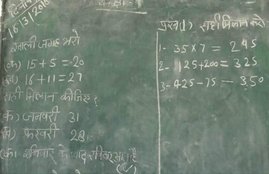 16/3/2018
खाली जगह भरो
(क) 15 + 5 = 20
(ख) 16 + 11 = 27
सही मिलान कीजिए
(क) जनवरी 31
(ख) फरवरी 28
(क) रविवार के बाद
प्रश्न (1) सही मिलान करो
1- 35 × 7 = 245
2- 125 + 200 = 325
3- 425 - 75 = 350